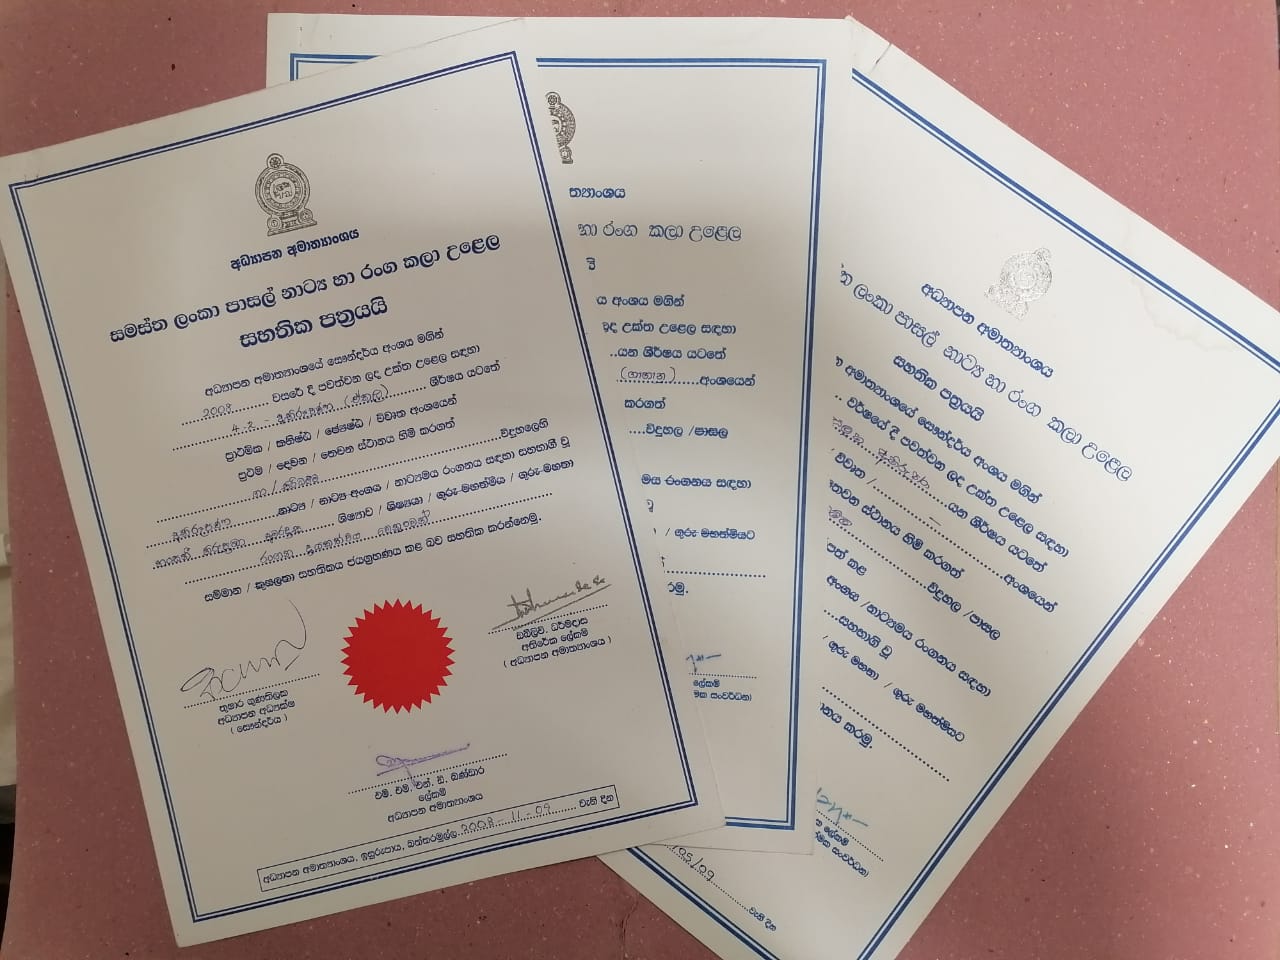 අධ්‍යාපන අමාත්‍යාංශය
සමස්ත ලංකා පාසල් නාට්‍ය හා රංග කලා උළෙල
සහතික පත්‍රයයි
අධ්‍යාපන අමාත්‍යාංශයේ සෞන්දර්ය අංශය මගින්
2008 වසරේ දී පවත්වන ලද උක්ත උළෙල සඳහා
4.2 (ඒකල) ශීර්ෂය යටතේ
ප්‍රාථමික / කනිෂ්ඨ / ජ්‍යෙෂ්ඨ / විවෘත අංශයෙන්
ප්‍රථම / දෙවන / තෙවන ස්ථානය හිමි කරගත්
විදුහලෙහි
නාට්‍ය / නාට්‍ය අංගය / නාට්‍යමය රංගනය සඳහා සහභාගී වූ
ශිෂ්‍යාව / ශිෂ්‍යයා / ගුරු-මහන්මිය / ගුරු-මහතා
රංගන
සම්මාන / කුසලතා සහතිකය ජයග්‍රහණය කළ බව සහතික කරන්නෙමු.
තුෂාර ගුණතිලක
අධ්‍යාපන අධ්‍යක්ෂ
( සෞන්දර්ය )
ඩබ්ලිව්. ධර්මදාස
අතිරේක ලේකම්
( අධ්‍යාපන අමාත්‍යාංශය )
එම්. එම්. එන්. ඩී. බණ්ඩාර
ලේකම්
අධ්‍යාපන අමාත්‍යාංශය
අධ්‍යාපන අමාත්‍යාංශය, ඉසුරුපාය, බත්තරමුල්ල. 2008-11-09 වැනි දින
ත්‍යාංශය
හා රංග කලා උළෙල
යි
ය අංශය මගින්
ලද උක්ත උළෙල සඳහා
යන ශීර්ෂය යටතේ
(ගායන) අංශයෙන්
කරගත්
විදුහල /පාසල
මය රංගනය සඳහා
වූ
/ ගුරු මහත්මියට
රමු.
ලේකම්
මක සංවර්ධන)
අධ්‍යාපන අමාත්‍යාංශය
ත ලංකා පාසල් නාට්‍ය හා රංග කලා උළෙල
සහතික පත්‍රයයි
අමාත්‍යාංශයේ සෞන්දර්ය අංශය මගින්
වර්ෂයේ දී පවත්වන ලද උක්ත උළෙල සඳහා
යන ශීර්ෂය යටතේ
විවෘත / අංශයෙන්
තෙවන ස්ථානය හිමි කරගත්
විදුහල /පාසල
පත් කළ
අංගය /නාට්‍යමය රංගනය සඳහා
සහභාගි වූ
ගුරු මහතා / ගුරු මහත්මියට
නය කරමු.
ලේකම්
සංවර්ධන)
/05/09 වැනි දින